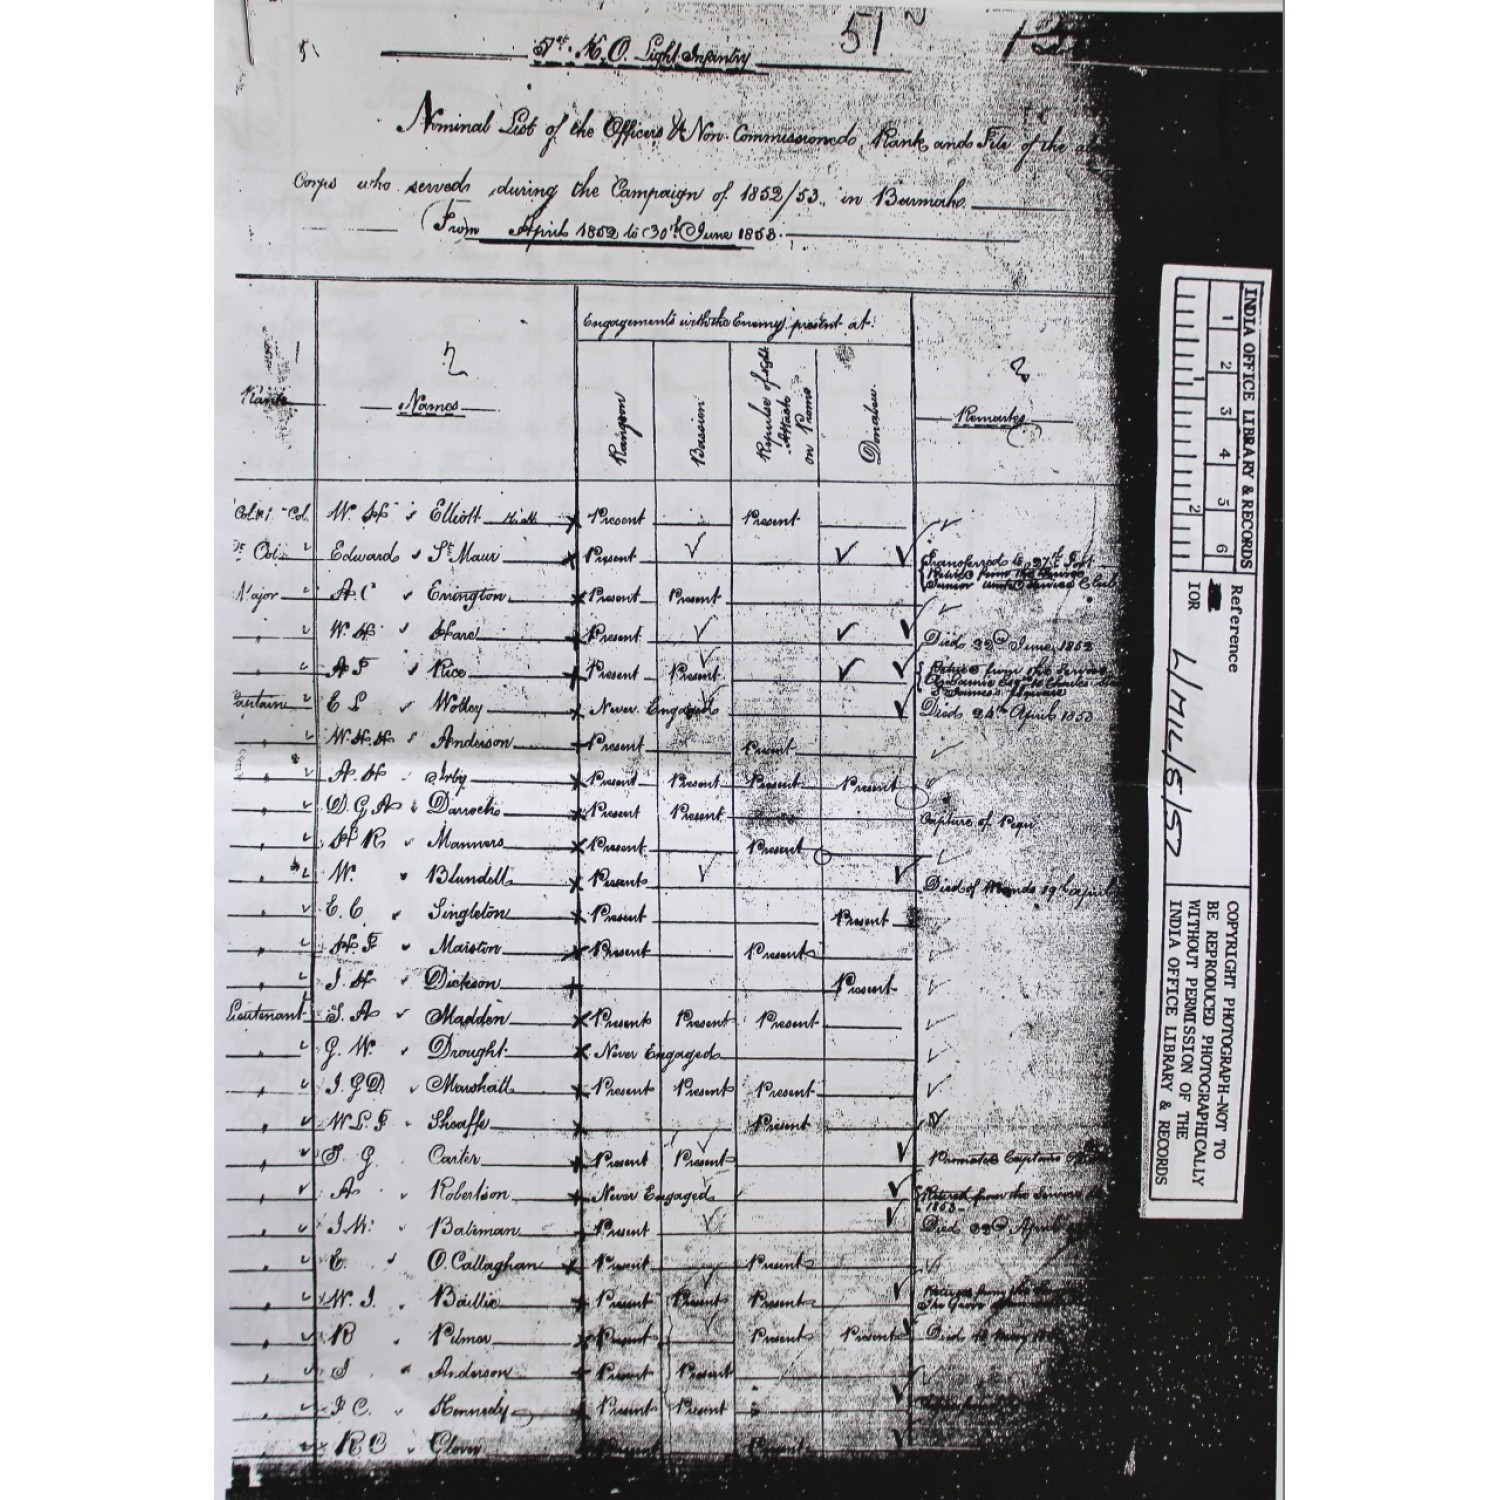 51
51st K.O. Light Infantry
Nominal List of the Officers & Non-Commissioned, Rank and File of the
Corps who served during the Campaign of 1852/53, in Burmah.
(From April 1852 to 30th June 1853.
Engagements with the Enemy present at:
Rank
2
Names
Rangoon
Bassein
Repulse of night Attack on Prome
Donabew.
Remarks
W. H. Elliott Present Present
Lt Col. Edward St Maur Present Transferred to 37th Foot
Major A. C. Errington Present Present
" W. H. Hare Present Died 22nd June 1852
" A F Rice Present Present Retired from the Service
Captain E L Wolley Never Engaged Died 24th April 1853
" W. H. H. Anderson Present Present
" A. H. Irby Present Present Present Present
" D. G. A. Darroch Present Present Capture of Pegu
" H R Manners Present Present
" W. Blundell Present Died of Wounds 19th April
" E. C. Singleton Present Present
" H. F. Marston Present Present
" J. H. Dickson Present
Lieutenant S. A. Madden Present Present Present
" G. W. Drought Never Engaged
" J. G. D. Marshall Present Present Present
" W L F Sheaffe Present
" S. G. Carter Present Present Promoted Captain
" A. Robertson Never Engaged Retired from the Service 1853
" J. W. Bateman Present Died 22nd April
" E. O'Callaghan Present Present
" W. J. Baillie Present Present Present
" R Pilmer Present Present Present Died
" J Anderson Present Present
" J C. Kennedy Present Present
" R C Glover Present Present
INDIA OFFICE LIBRARY & RECORDS
1 2 3 4 5 6
1 2
Reference
IOR L/MIL/5/57
COPYRIGHT PHOTOGRAPH-NOT TO
BE REPRODUCED PHOTOGRAPHICALLY
WITHOUT PERMISSION OF THE
INDIA OFFICE LIBRARY & RECORDS